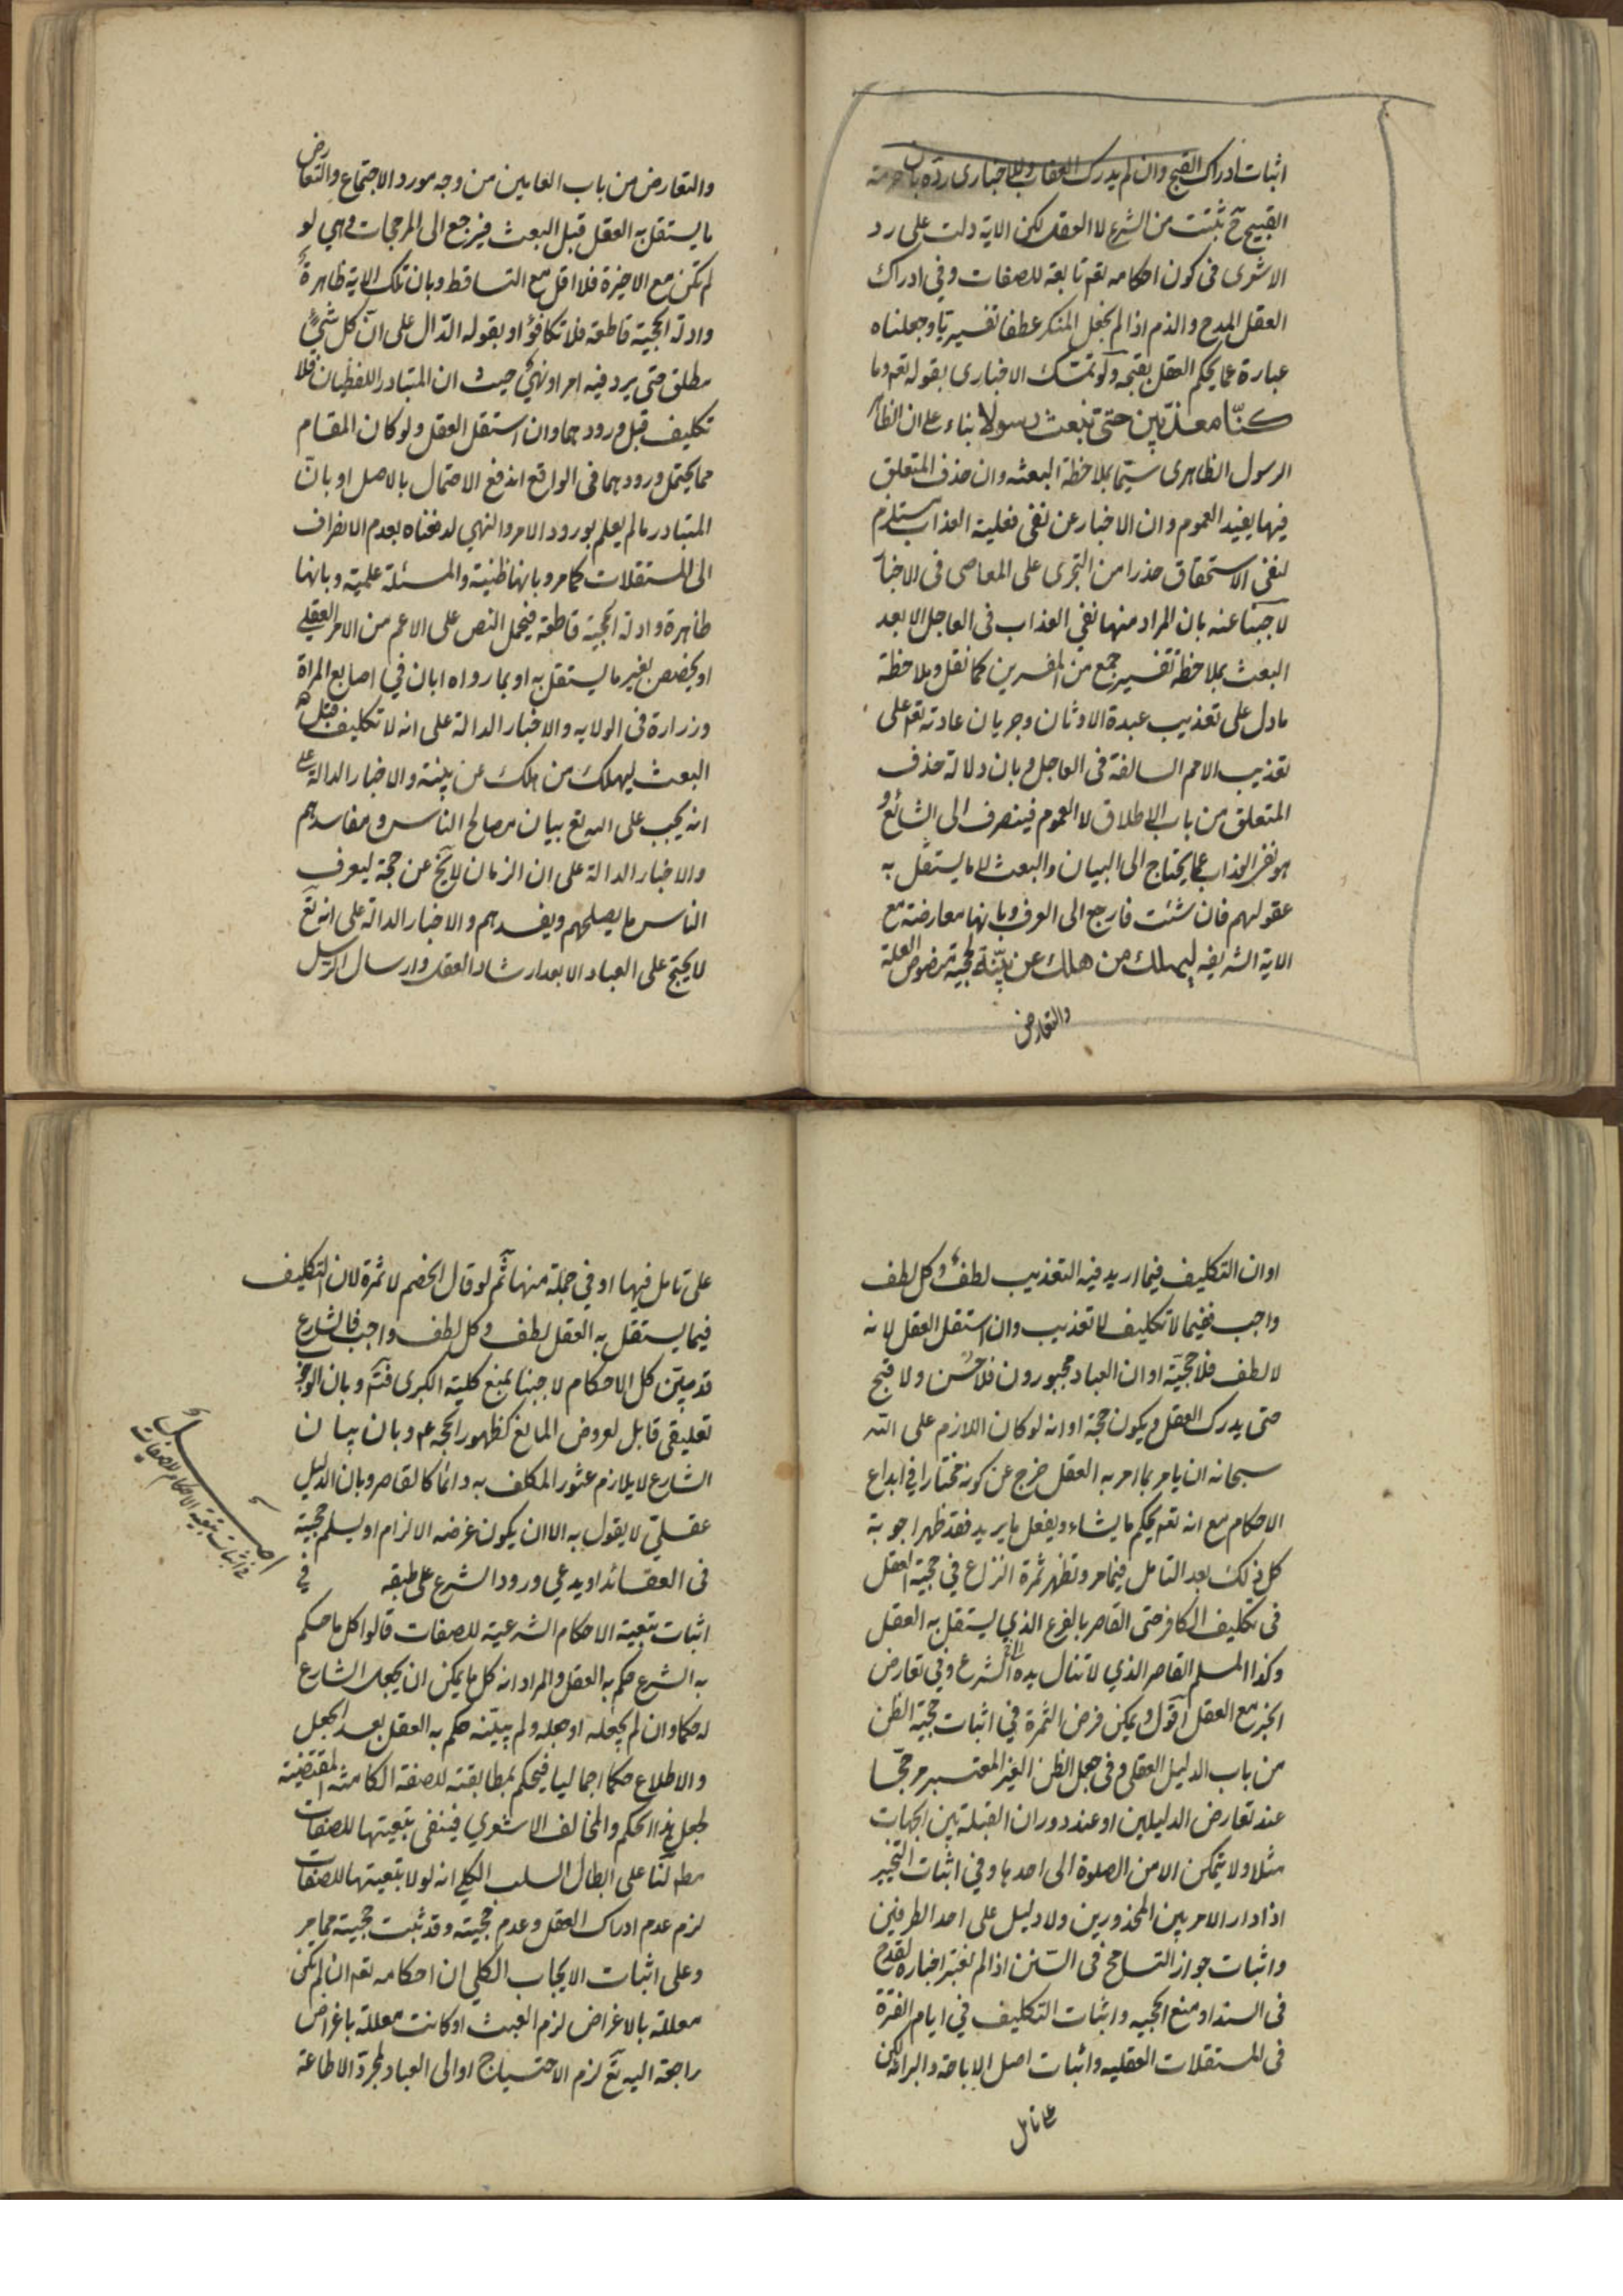 اثبات ادراك القبح وان لم يدرك العقاب وللاخبارى رده بان حرمة
القبيح ح تثبت من الشرع لا العقل لكن الاية دلت على رد
الاشعرى فى كون احكامه تعم تابعة للصفات وفى ادراك
العقل المدح والذم اذا لم نجعل المنكر عطفا تفسيريا وجعلناه
عبارة عما يحكم العقل بقبحه ولو تمسك الاخبارى بقوله تعم وما
كنّا معذّبين حتى نبعث رسولا بناء على ان الظا
الرسول الظاهرى سيّما بملاحظة البعثه وان حذف المتعلق
فيها يفيد العموم وان الاخبار عن نفى فعلية العذاب يستلزم
لنفى الاستحقاق حذرا من التجرى على المعاصى فى الاخبا
لاجبنا عنه بان المراد منها نفى العذاب فى العاجل الا بعد
البعث بملاحظة تفسير جمع من المفسرين كما نقل وملاحظة
مادل على تعذيب عبدة الاوثان وجريان عادته تعم على
تعذيب الامم السالفة فى العاجل وبان دلالة حذف
المتعلق من باب الاطلاق لا العموم فينصرف الى الشائع و
هو نفى العذاب عما يحتاج الى البيان والبعث لا ما يستقل به
عقولهم فان شئت فارجع الى العرف وبانها معارضة مع
الاية الشريفه ليهلك من هلك عن بيّنة لحجية منصوص العلة
والتعارض
والتعارض من باب العامين من وجه مورد الاجتماع والتعارض
ما يستقل به العقل قبل البعث فيرجع الى المرجحات وهى لو
لم تكن مع الاخيرة فلا اقل مع التساقط وبان تلك الاية ظاهرة
وادلة الحجية قاطعة فلا تكافؤ او بقوله الدّال على انّ كل شئ
مطلق حتى يرد فيه امر او نهى حيث ان المتبادر اللفظيان فلا
تكليف قبل ورودهما وان استقل العقل ولو كان المقام
مما يحتمل ورودهما فى الواقع اندفع الاحتمال بالاصل او بانّ
المتبادر ما لم يعلم بورود الامر والنهى لدفعناه بعدم الانصراف
الى المستقلات كما مر وبانها ظنية والمسئلة علمية وبانها
ظاهرة وادلة الحجية قاطعة فيحمل النص على الاعم من الامر العقلى
او يخصص بغير ما يستقل به او بما رواه ابان فى اصابع المراة
وزرارة فى الولايه والاخبار الدالة على انه لا تكليف قبل
البعث ليهلك من هلك عن بينة والاخبار الدالة على
انه يجب على الله تع بيان مصالح الناس ومفاسدهم
والاخبار الدالة على ان الزمان لا يخ عن حجة ليعرف
الناس ما يصلحهم ويفسدهم والاخبار الدالة على انه تع
لا يحتج على العباد الا بعد ارشاد العقل وارسال الرسل
او ان التكليف فيما اريد فيه التعذيب لطف وكل لطف
واجب ففيما لا تكليف لا تعذيب وان استقل العقل لانه
لا لطف فلا حجيّة او ان العباد مجبورون فلا حسن ولا قبح
حتى يدرك العقل ويكون حجة او انه لو كان اللازم على الله
سبحانه ان يامر بما امر به العقل خرج عن كونه مختارا فى ابداع
الاحكام مع انه تعم يحكم ما يشاء ويفعل ما يريد فقد ظهر اجوبة
كل ذلك بعد التامل فيما مر وتظهر ثمرة النزاع فى حجية العقل
فى تكليف الكافر حتى القاصر بالفرع الذي يستقل به العقل
وكذا المسلم القاصر الذي لا تنال يده الى الشرع وفى تعارض
الخبر مع العقل اقول ويمكن فرض الثمرة فى اثبات حجية الظن
من باب الدليل العقلى وفى جعل الظن الغير المعتبر مرجحا
عند تعارض الدليلين او عند دوران القبلة بين الجهات
مثلا ولا يتمكن الا من الصلوة الى احدها وفى اثبات التخيير
اذا دار الامر بين المحذورين ولا دليل على احد الطرفين
واثبات جواز التسامح فى السنن اذا لم نعتبر اخباره لقدح
فى السند او منع الحجيه واثبات التكليف فى ايام الفترة
فى المستقلات العقليه واثبات اصل الاباحة والبرائة لكن
على تامل
على تامل فيها او فى جملة منها ثم لو قال الخصم لا ثمرة لان التكليف
فيما يستقل به العقل لطف وكل لطف واجب فالشارع
قد بيّن كل الاحكام لاجبنا بمنع كلية الكبرى فتم وبان الوجوب
تعليقى قابل لعروض المانع كظهور الحجة عم وبان بيان
الشارع لا يلازم عثور المكلف به دائما كالقاصر وبان الدليل
عقلىّ لا يقول به الا ان يكون غرضه الالزام او يسلم حجية
فى العقائد او يدعي ورود الشرع على طبقه فى
اثبات تبعية الاحكام الشرعية للصفات قالوا كل ما حكم
به الشرع حكم به العقل والمراد انه كل ما يمكن ان يجعل الشارع
له حكما وان لم يجعله او جعله ولم يبيّنه حكم به العقل بعد الجعل
والاطلاع حكما اجماليا فيحكم بمطابقته للصفة الكامنة المقتضية
لجعل هذا الحكم والمخالف الاشعري فينفى تبعيتها للصفات
مطم لنا على ابطال السلب الكلي انه لولا تبعيتها للصفات
لزم عدم ادراك العقل وعدم حجيته وقد ثبت حجيته مما مر
وعلى اثبات الايجاب الكلي ان احكامه تعم ان لم تكن
معللة بالاغراض لزم العبث او كانت معللة باغراض
راجعة اليه تع لزم الاحتياج او الى العباد لمجرد الاطاعة
اصل
فى اثبات تبعية الاحكام للصفات